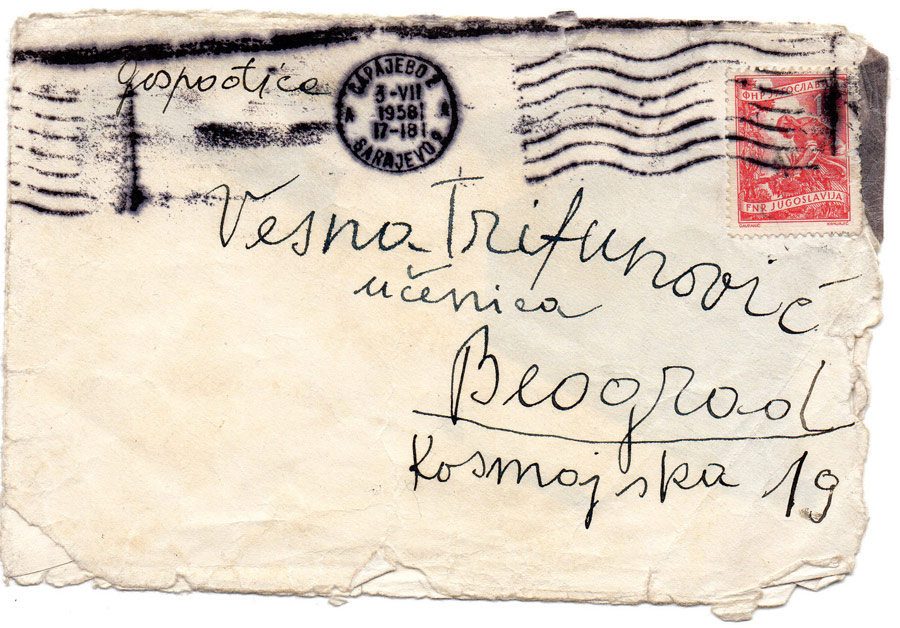 Gospođica
САРАЈЕВО 2
3-VII
1958
17-18
SARAJEVO 2
ФНР ЈУГОСЛАВИЈА
FNR JUGOSLAVIJA
Vesna Trifunović
učenica
Beograd
Kosmajska 19